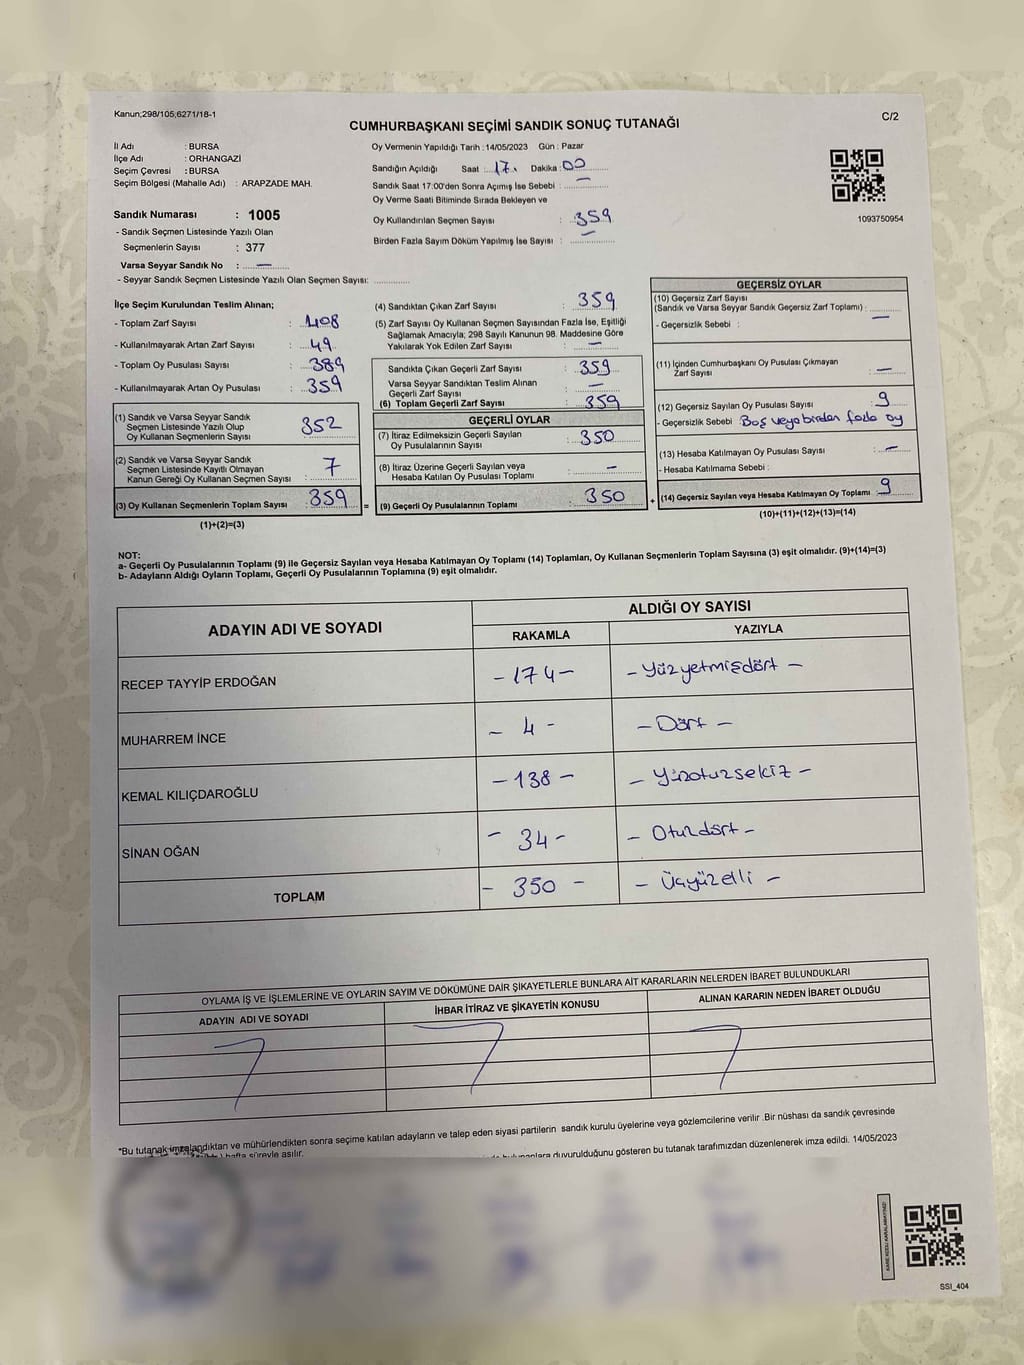 Kanun;298/105;6271/18-1
C/2
CUMHURBAŞKANI SEÇİMİ SANDIK SONUÇ TUTANAĞI
İl Adı : BURSA
İlçe Adı : ORHANGAZİ
Seçim Çevresi : BURSA
Seçim Bölgesi (Mahalle Adı) : ARAPZADE MAH.
Sandık Numarası : 1005
- Sandık Seçmen Listesinde Yazılı Olan
Seçmenlerin Sayısı : 377
Varsa Seyyar Sandık No : —
- Seyyar Sandık Seçmen Listesinde Yazılı Olan Seçmen Sayısı:
Oy Vermenin Yapıldığı Tarih : 14/05/2023 Gün : Pazar
Sandığın Açıldığı Saat : 17 . Dakika : 00
Sandık Saat 17:00'den Sonra Açımış İse Sebebi : —
Oy Verme Saati Bitiminde Sırada Bekleyen ve
Oy Kullandırılan Seçmen Sayısı : 359
Birden Fazla Sayım Döküm Yapılmış İse Sayısı : —
1093750954
İlçe Seçim Kurulundan Teslim Alınan;
- Toplam Zarf Sayısı : 408
- Kullanılmayarak Artan Zarf Sayısı : 49
- Toplam Oy Pusulası Sayısı : 389
- Kullanılmayarak Artan Oy Pusulası : 359
(1) Sandık ve Varsa Seyyar Sandık
Seçmen Listesinde Yazılı Olup
Oy Kullanan Seçmenlerin Sayısı 352
(2) Sandık ve Varsa Seyyar Sandık
Seçmen Listesinde Kayıtlı Olmayan
Kanun Gereği Oy Kullanan Seçmen Sayısı : 7
(3) Oy Kullanan Seçmenlerin Toplam Sayısı : 359
(1)+(2)=(3)
=
(4) Sandıktan Çıkan Zarf Sayısı : 359
(5) Zarf Sayısı Oy Kullanan Seçmen Sayısından Fazla İse, Eşitliği
Sağlamak Amacıyla; 298 Sayılı Kanunun 98. Maddesine Göre
Yakılarak Yok Edilen Zarf Sayısı : —
Sandıkta Çıkan Geçerli Zarf Sayısı : 359
Varsa Seyyar Sandıktan Teslim Alınan
Geçerli Zarf Sayısı : —
(6) Toplam Geçerli Zarf Sayısı : 359
GEÇERLİ OYLAR
(7) İtiraz Edilmeksizin Geçerli Sayılan
Oy Pusulalarının Sayısı : 350
(8) İtiraz Üzerine Geçerli Sayılan veya
Hesaba Katılan Oy Pusulası Toplamı : —
(9) Geçerli Oy Pusulalarının Toplamı : 350
+
GEÇERSİZ OYLAR
(10) Geçersiz Zarf Sayısı
(Sandık ve Varsa Seyyar Sandık Geçersiz Zarf Toplamı) : —
- Geçersizlik Sebebi :
(11) İçinden Cumhurbaşkanı Oy Pusulası Çıkmayan
Zarf Sayısı : —
(12) Geçersiz Sayılan Oy Pusulası Sayısı : 9
- Geçersizlik Sebebi : Boş veya birden fazla oy
(13) Hesaba Katılmayan Oy Pusulası Sayısı : —
- Hesaba Katılmama Sebebi :
(14) Geçersiz Sayılan veya Hesaba Katılmayan Oy Toplamı : 9
(10)+(11)+(12)+(13)=(14)
NOT:
a- Geçerli Oy Pusulalarının Toplamı (9) ile Geçersiz Sayılan veya Hesaba Katılmayan Oy Toplamı (14) Toplamları, Oy Kullanan Seçmenlerin Toplam Sayısına (3) eşit olmalıdır. (9)+(14)=(3)
b- Adayların Aldığı Oyların Toplamı, Geçerli Oy Pusulalarının Toplamına (9) eşit olmalıdır.
ADAYIN ADI VE SOYADI
ALDIĞI OY SAYISI
RAKAMLA YAZIYLA
RECEP TAYYİP ERDOĞAN - 174 - - Yüzyetmişdört -
MUHARREM İNCE - 4 - - Dört -
KEMAL KILIÇDAROĞLU - 138 - - Yüzotuzsekiz -
SİNAN OĞAN - 34 - - Otuzdört -
TOPLAM - 350 - - Üçyüzelli -
OYLAMA İŞ VE İŞLEMLERİNE VE OYLARIN SAYIM VE DÖKÜMÜNE DAİR ŞİKAYETLERLE BUNLARA AİT KARARLARIN NELERDEN İBARET BULUNDUKLARI
ADAYIN ADI VE SOYADI İHBAR İTİRAZ VE ŞİKAYETİN KONUSU ALINAN KARARIN NEDEN İBARET OLDUĞU
*Bu tutanak imzalandıktan ve mühürlendikten sonra seçime katılan adayların ve talep eden siyasi partilerin sandık kurulu üyelerine veya gözlemcilerine verilir .Bir nüshası da sandık çevresinde
hafta süreyle asılır.
duyurulduğunu gösteren bu tutanak tarafımızdan düzenlenerek imza edildi. 14/05/2023
KARE KODU KARALAMAYINIZ!
SSI_404